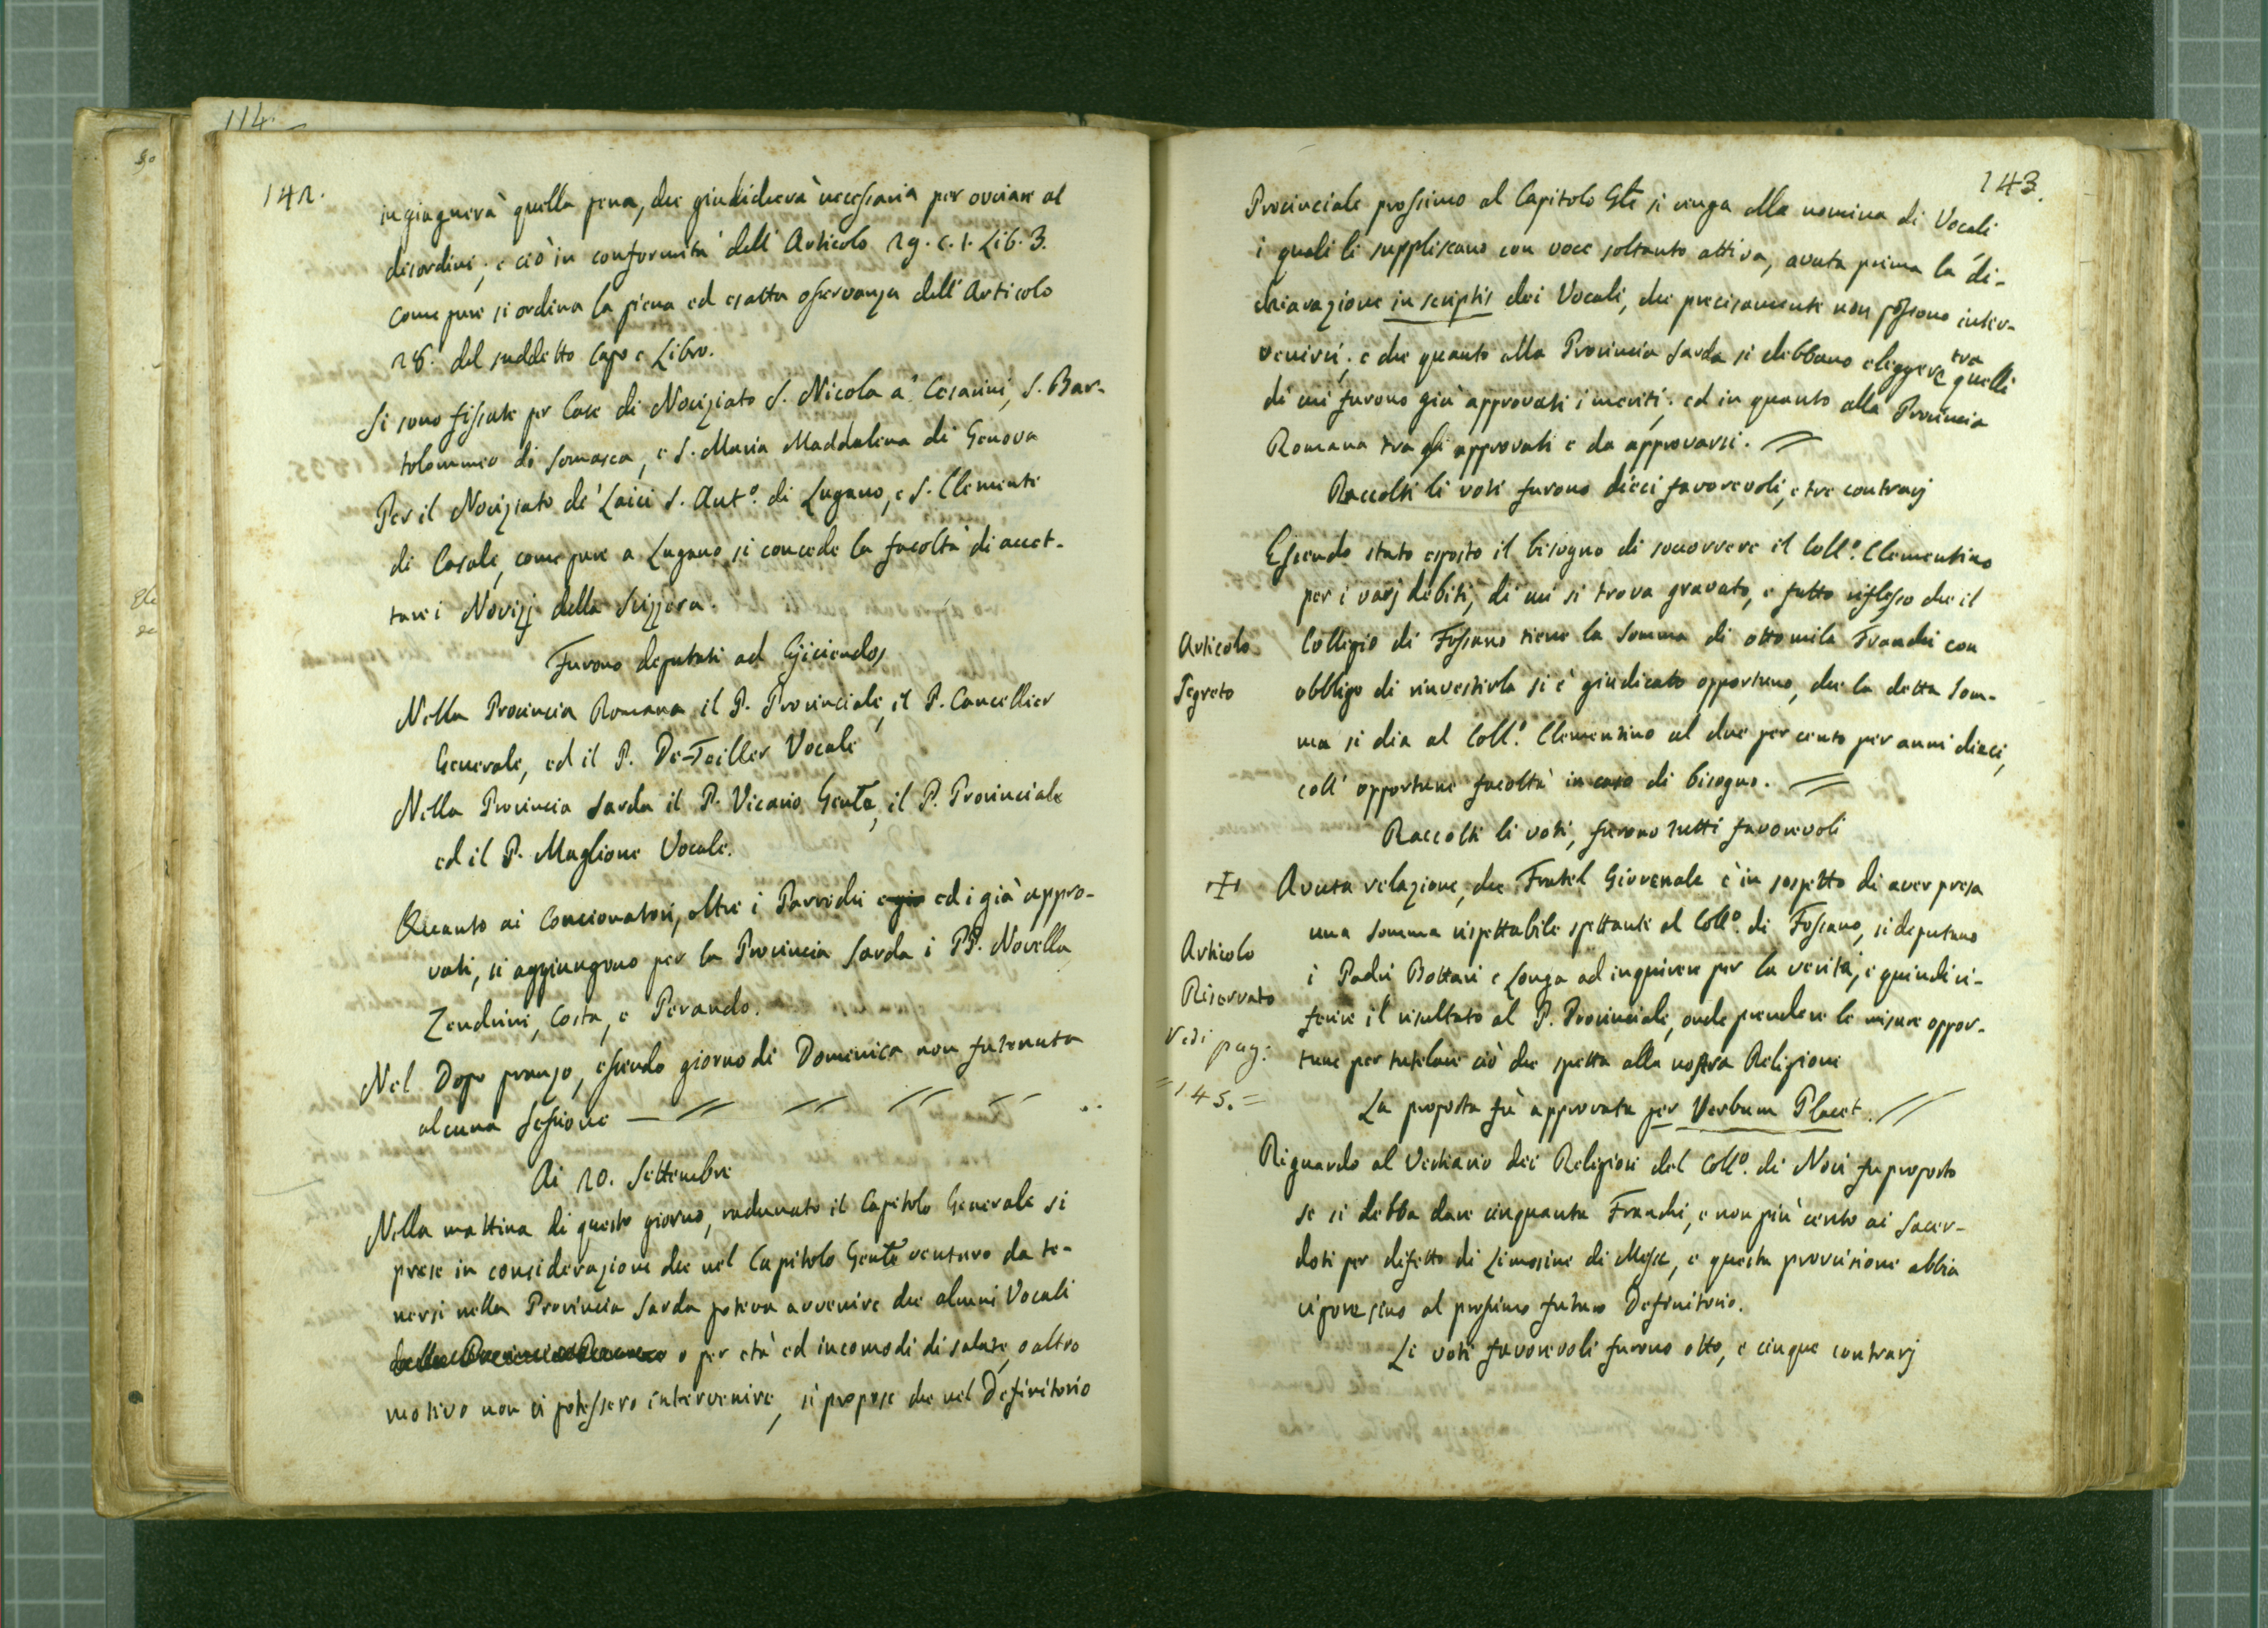 114.
142.
ingiugnerà quella pena, che giudicherà necessaria per ovviare al
disordini; e ciò in conformità dell' Articolo 29. c. 1. Lib. 3.
Come pure si ordina la piena ed esatta osservanza dell' Articolo
28. del suddetto Capo e Libro.
Si sono fissate per Case di Noviziato S. Nicola a' Cesarini, S. Bar-
tolommeo di Somasca, e S. Maria Maddalena di Genova
Per il Noviziato de' Laici S. Ant.o di Lugano, e S. Clemente
di Casale, come pure a Lugano si concede la facoltà di accet-
tare i Novizj della Svizzera.
Furono deputati ad Ejiciendos
Nella Provincia Romana il P. Provinciale, il P. Cancellier
Generale, ed il P. De-Feiller Vocale
Nella Provincia Sarda il P. Vicario Genle, il P. Provinciale
ed il P. Maglione Vocale.
Quanto ai Concionatori, oltre i Parrochi e già ed i già appro-
vati, si aggiungono per la Provincia Sarda i PP. Novella
Zendrini, Costa, e Perando.
Nel Dopo pranzo, essendo giorno di Domenica non fu tenuta
alcuna Sessione
Ai 20. Settembre
Nella mattina di questo giorno, radunato il Capitolo Generale si
prese in considerazione che nel Capitolo Genle venturo da te-
nersi nella Provincia Sarda poteva avvenire che alcuni Vocali
della Provincia Romana o per età ed incomodi di salute, o altro
motivo non vi potessero intervenire, si propose che nel Definitorio
143.
Provinciale prossimo al Capitolo Gle si venga alla nomina di Vocali
i quali li suppliscano con voce soltanto attiva, avuta prima la di-
chiarazione in scriptis dei Vocali, che precisamente non possono inter-
venirvi; e che quanto alla Provincia Sarda si debbano eleggere tra quelli
di cui furono già approvati i meriti; ed in quanto alla Provincia
Romana tra gli approvati e da approvarsi.
Raccolti li voti furono dieci favorevoli, e tre contrarj
Essendo stato esposto il bisogno di soccorrere il Coll.o Clementino
per i varj debiti, di cui si trova gravato, e fatto riflesso che il
Articolo Segreto
Collegio di Fossano tiene la Somma di otto mila Franchi con
obbligo di rinvestirla si è giudicato opportuno, che la detta Som-
ma si dia al Coll.o Clementino al due per cento per anni dieci,
coll' opportune facoltà in caso di bisogno.
Raccolti li voti, furono tutti favorevoli
Avuta relazione, che Fratel Giovenale è in sospetto di aver presa
una Somma rispettabile spettante al Coll.o di Fossano, si deputano
Articolo Riservato
i Padri Bottari e Longa ad inquirere per la verità, e quindi ri-
ferire il risultato al P. Provinciale, onde prendere le misure oppor-
Vedi pag:
=145.=
tune per tutelare ciò che spetta alla nostra Religione
La proposta fù approvata per Verbum Placet.
Riguardo al Vestiario dei Religiosi del Coll.o di Novi fu proposto
se si debba dare cinquanta Franchi, e non più cento ai Sacer-
doti per difetto di Limosine di Messe, e questa provvisione abbia
vigore sino al prossimo futuro Definitorio.
Li voti favorevoli furono otto, e cinque contrarj